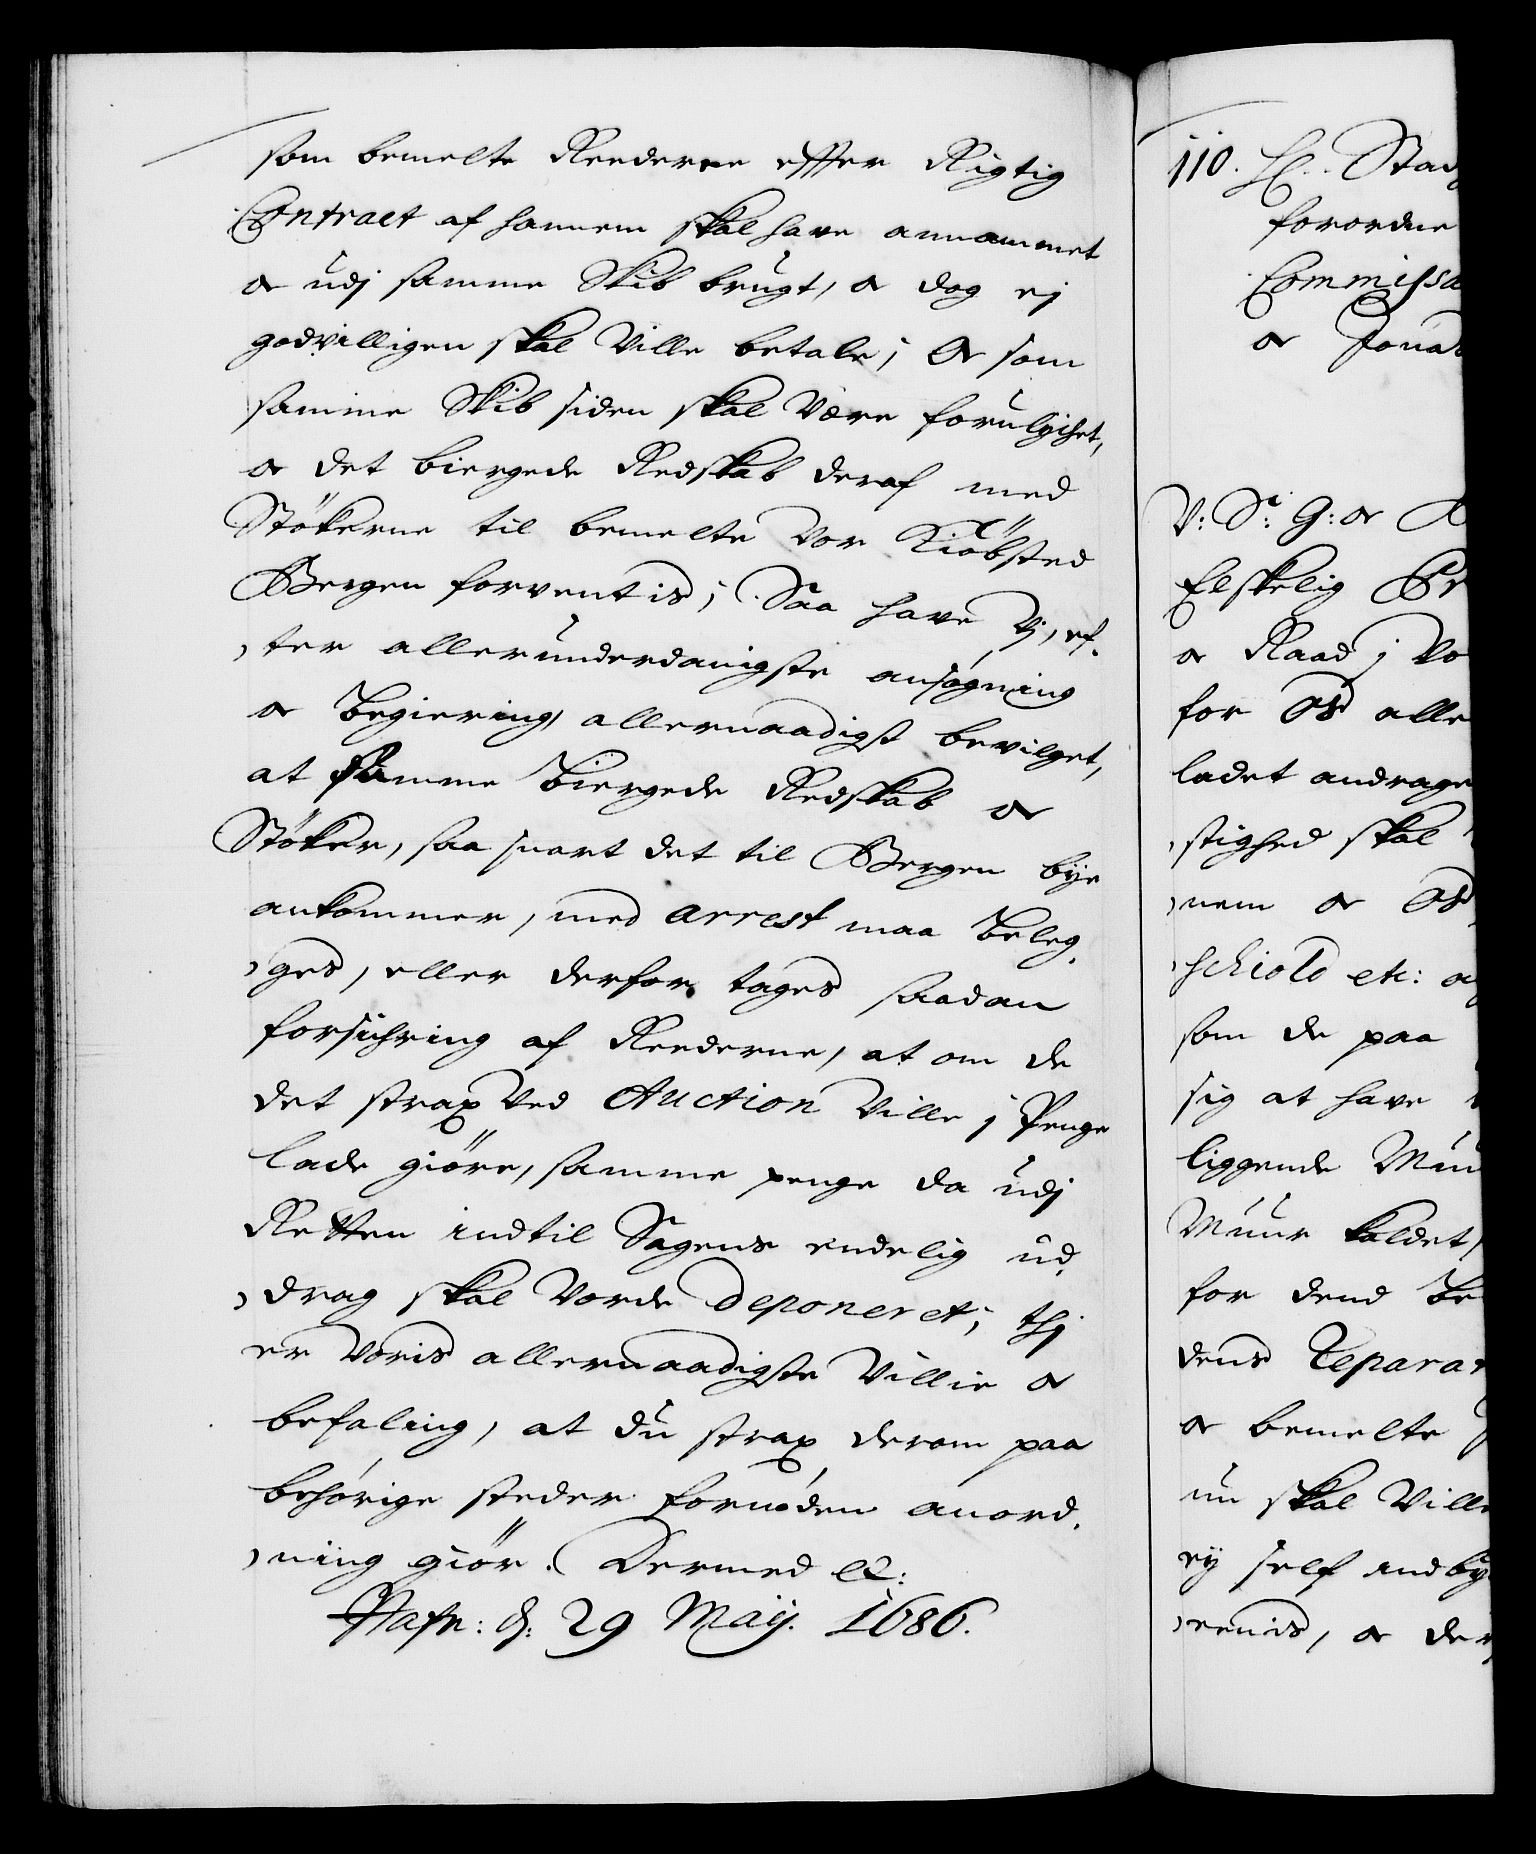 som bemelte Reederne effter Rigtig
Contract af hannem skal have annammet
oc udj samme Skib brugt, oc dog ej
godvilligen skal Ville betale; Oc som
samme Skib siden skal Være forulychet,
oc det biergede Redskab deraf med
Støkerne til bemelte Vor Kiöbsted
Bergen forventis; Saa have Vj, ef-
ter allerunderdanigste ansøgning
oc Begiering, allernaadigst bevilget,
at samme Biergede Redskab oc
Støker, saa snart det til Bergen bÿe
ankommer, med Arrest maa Beleg-
ges, eller derfor tages saadan
forsichring af Reederne, at om de
det strax Ved Auction Ville j Penge
lade giöre, samme penge da udj
Retten indtil Sagens endelig ud-
drag skal Vorde deponeret; thj
er Voris allernaadigste Villie oc
befaling, at du strax derom paa
behörige steder fornöden anord-
ning giör. Dermed etc:
Hafn: d: 29 Maÿ. 1686.
110. H. Stad
forordne
Commissa
oc Jona
V: Sl: G: oc
Elskelig
oc Raad j Vo
for Os alle
ladet andrage
stighed skal
nem oc Os
schiold etc:
som de paa
sig at have
liggende Muu
Muur kaldet,
for dend Be
dens Repara
oc bemelte
nu skal Ville
eÿ self indbÿ
eenis, oc der